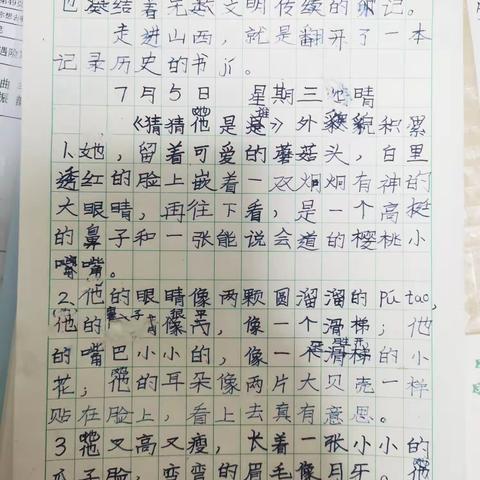 也凝结着无数文明传续的印记。
走进山西，就是翻开了一本
记录历史的书jí。
7月5日 星期三 晴
《猜猜他是谁》外貌积累
1.她，留着可爱的蘑菇头，白里
透红的脸上嵌着一双炯炯有神的
大眼睛，再往下看，是一个高挺
的鼻子和一张能说会道的樱桃小
嘴。
2.他的眼睛像两颗圆溜溜的pú tao，
他的鼻子很高，像一个滑梯；他
的嘴巴小小的，像一朵的小
花；他的耳朵像两片大贝壳一样
贴在脸上，看上去真有意思。
3他又高又瘦，长着一张小小的
瓜子脸，弯弯的眉毛像月牙。他